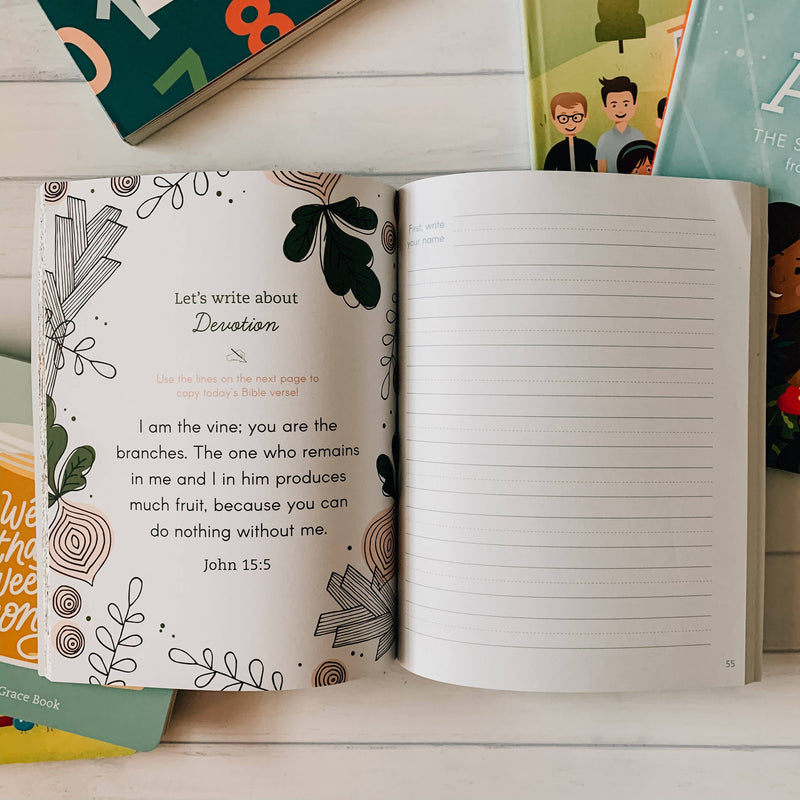 1
8
7
0
THE S
fro
Let's write about
Devotion
Use the lines on the next page to
copy today's Bible verse!
I am the vine; you are the
branches. The one who remains
in me and I in him produces
much fruit, because you can
do nothing without me.
John 15:5
First, write
your name
55
We
tha
wee
ong
Grace Book